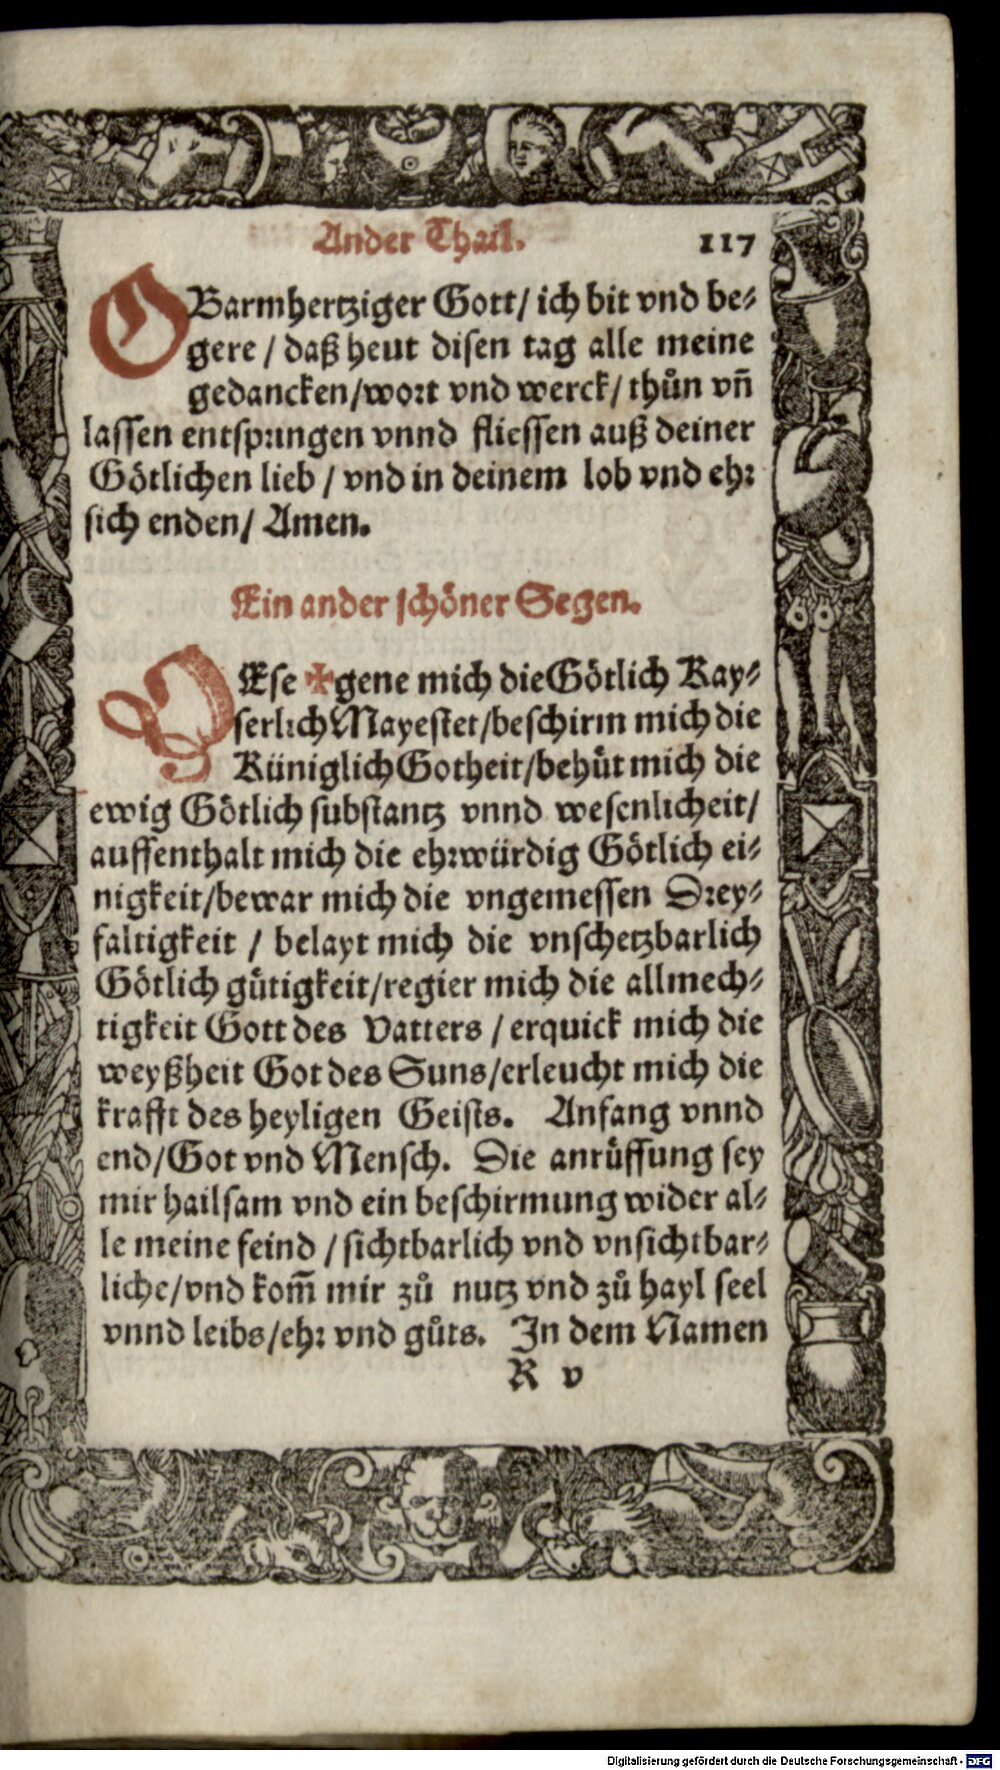 Ander Thail. 117
OBarmhertziger Gott/ ich bit vnd be⸗
gere / daß heut disen tag alle meine
gedancken/wort vnd werck/ thůn vñ
lassen entspringen vnnd fliessen auß deiner
Götlichen lieb / vnd in deinem lob vnd ehr
sich enden/ Amen.
Ein ander schöner Segen.
Ese ✠gene mich die Götlich Kay⸗
serlich Mayestet/beschirm mich die
Küniglich Gotheit/behüt mich die
ewig Götlich substantz vnnd wesenlicheit/
auffenthalt mich die ehrwürdig Götlich ei⸗
nigkeit/bewar mich die vngemessen Drey⸗
faltigkeit / belayt mich die vnschetzbarlich
Götlich gütigkeit/regier mich die allmech⸗
tigkeit Gott des Vatters / erquick mich die
weyßheit Got des Suns/erleucht mich die
krafft des heyligen Geists. Anfang vnnd
end/Got vnd Mensch. Die anrüffung sey
mir hailsam vnd ein beschirmung wider al⸗
le meine feind / sichtbarlich vnd vnsichtbar⸗
liche/vnd kom̃ mir zů nutz vnd zů hayl seel
vnnd leibs/ehr vnd gůts. In dem Namen
R v
Digitalisierung gefördert durch die Deutsche Forschungsgemeinschaft - DFG